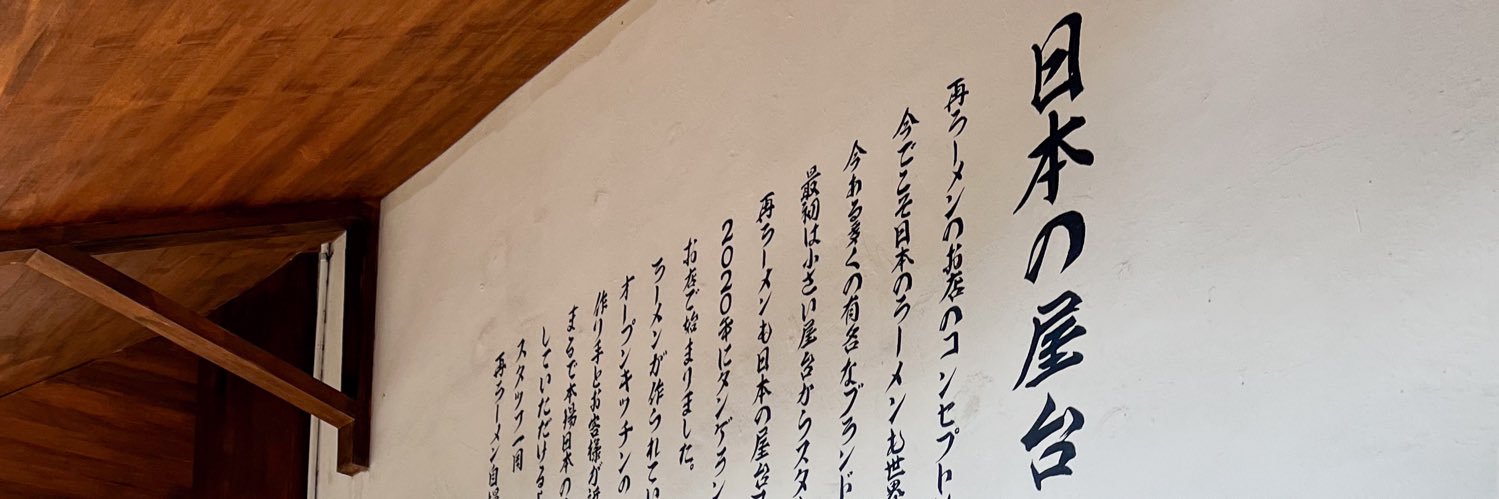 日本の屋台
再ラーメンのお店のコンセプト
今でこそ日本のラーメンも世界
今ある多くの有名なブランド
最初は小さい屋台からスタ
再ラーメンも日本の屋台
2020年にタンゲラン
お店で始まりました。
ラーメンが作られてい
オープンキッチンの
作り手とお客様が近
まるで本場日本の
していただける
スタッフ一同
再ラーメン自慢